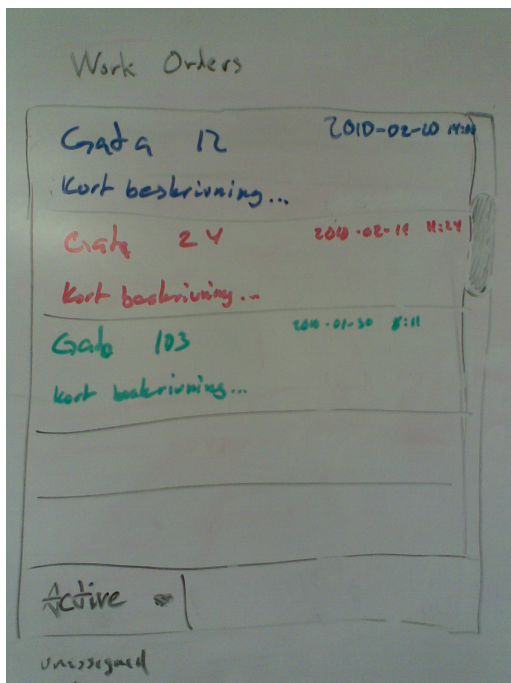 Work Orders
Gata 12 2010-02-20
Kort beskrivning...
Gata 24 2010-02-19 11:24
Kort beskrivning...
Gata 103 2010-01-30 8:11
Kort beskrivning...
Active
unassigned